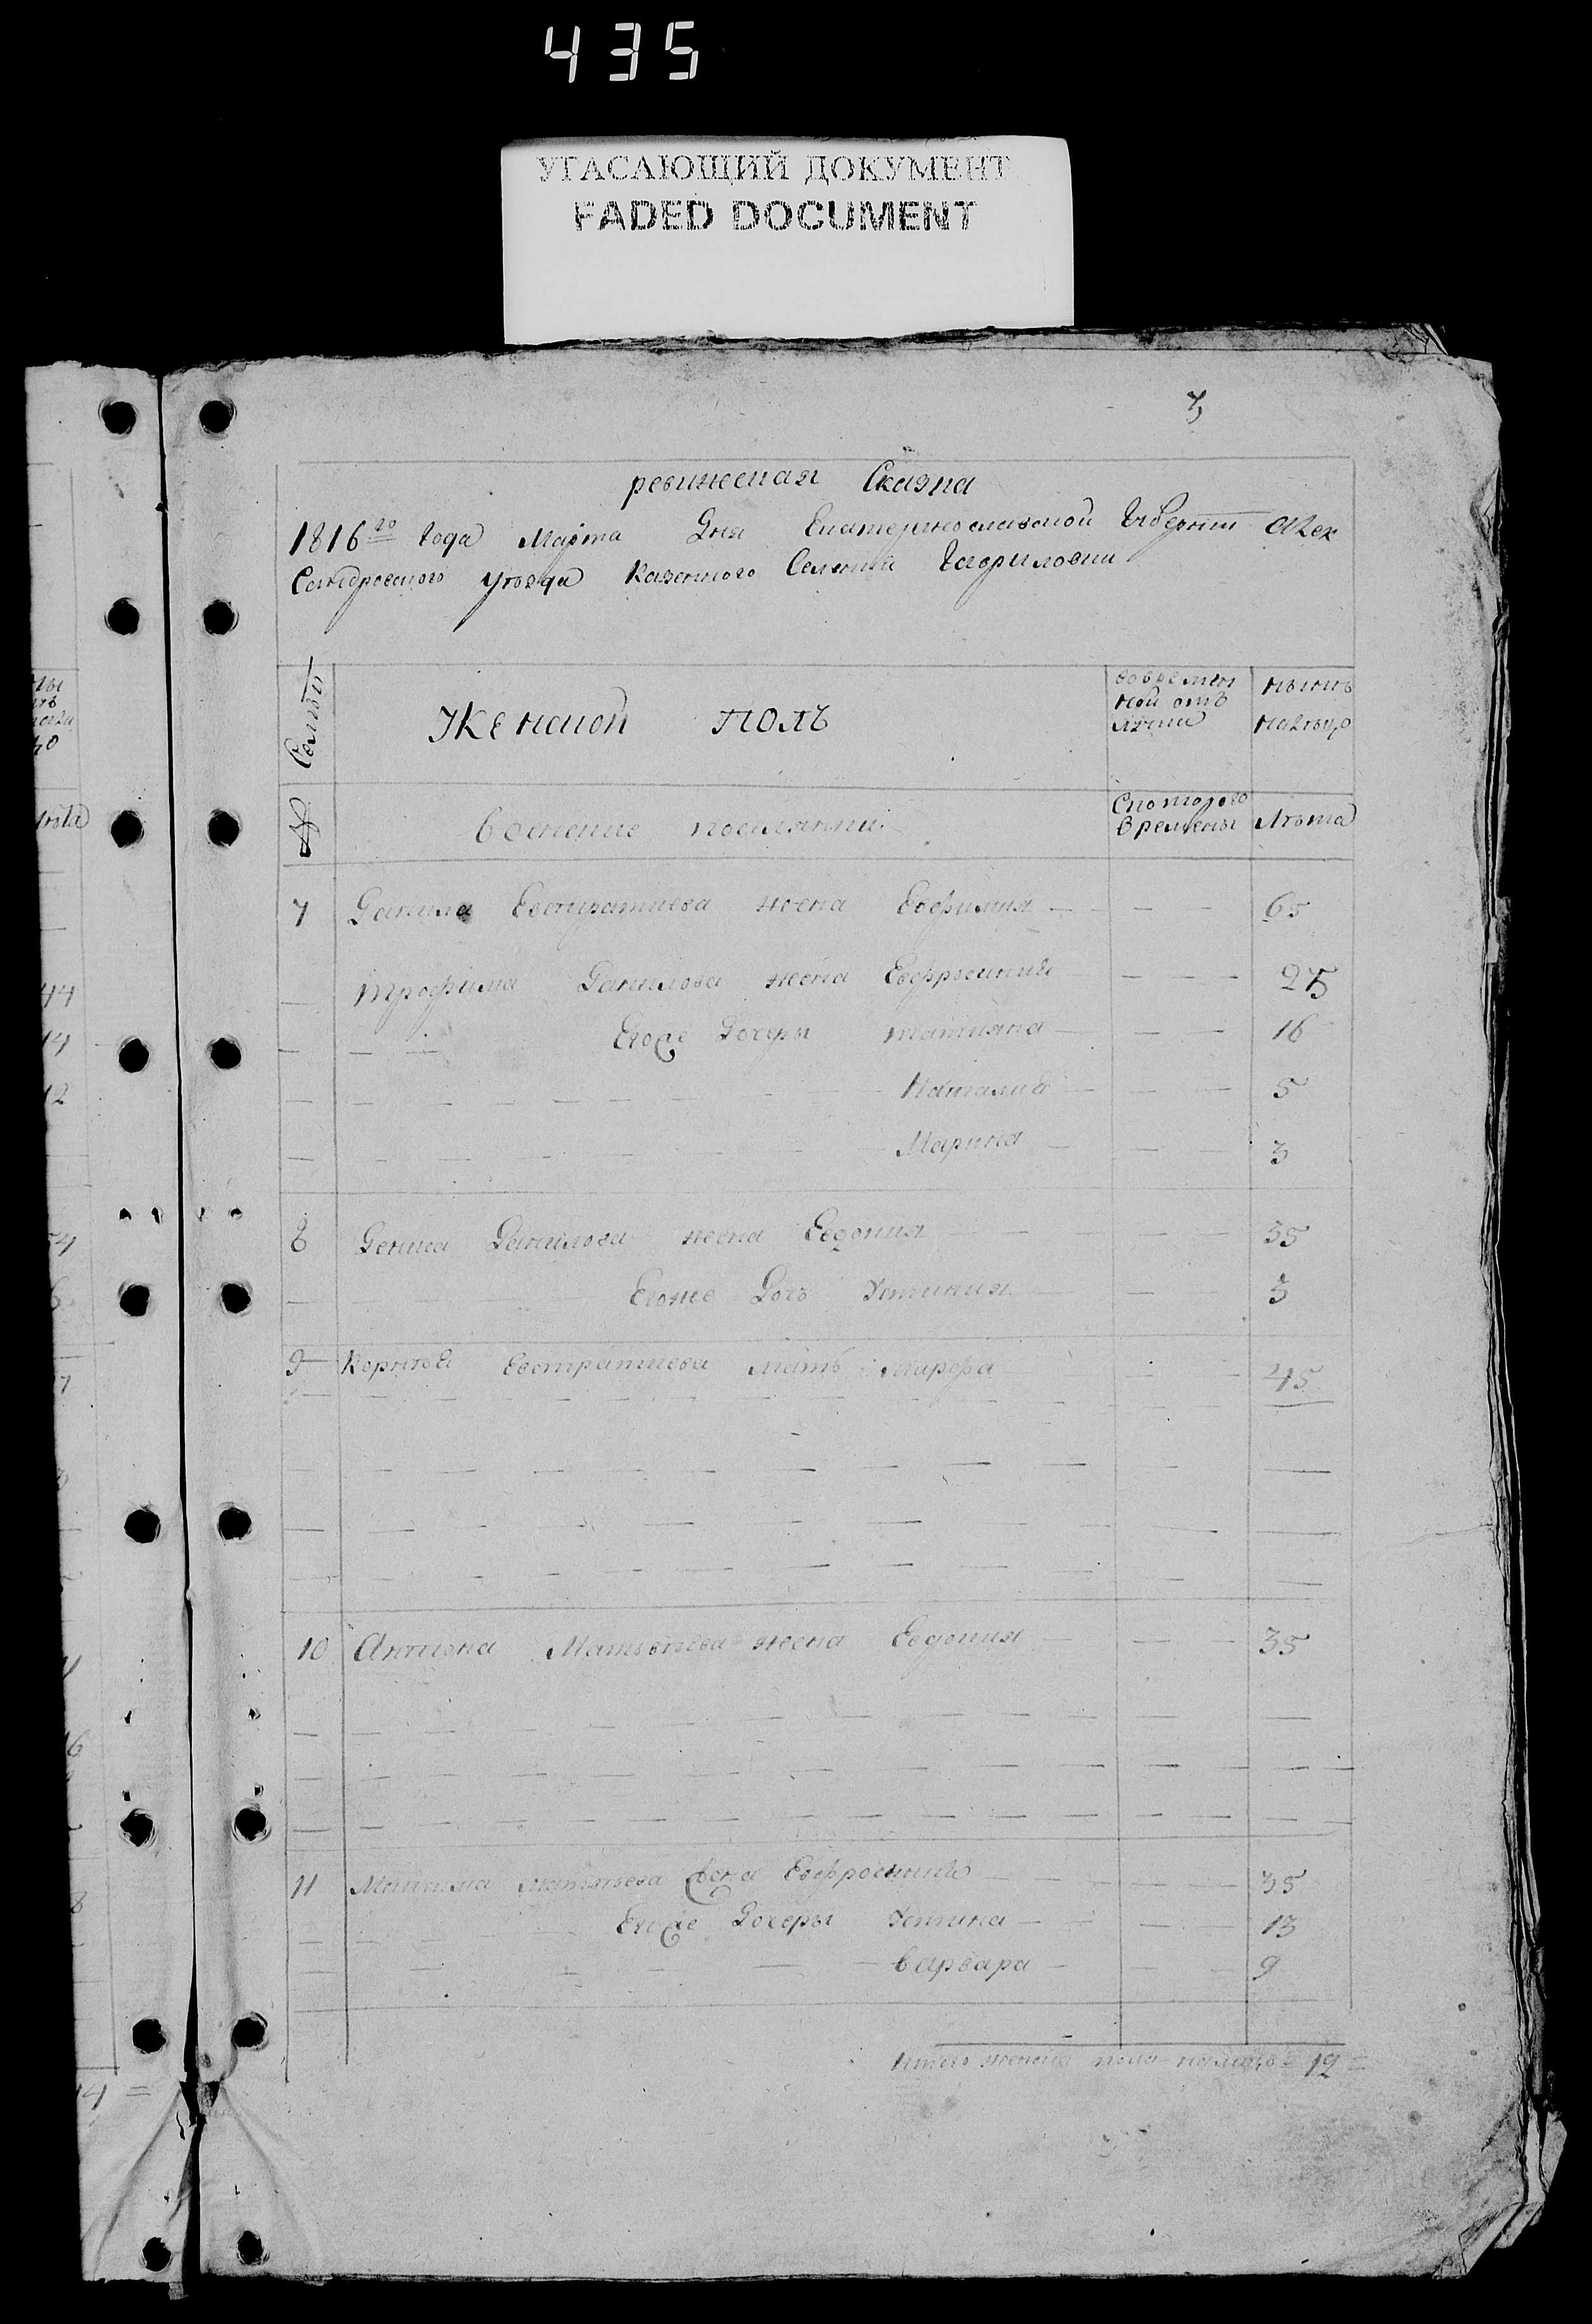 435
УГАСАЮЩИЙ ДОКУМЕНТ
FADED DOCUMENT
3
ревижская Сказка
1816го Года Марта Дня Екатеринославской Губернии Алек
сандровского уѣзда Казенного Селения Гавриловки
Семьи
Женской полъ
вовремен
ной отъ
лучки
нынѣ
налицо
№
военные поселянки
Скоторого
времены
Лѣта
7 Данила Евстратиева жена Евфимия 65
Трофима Данилова жена Евфросиния 25
Егоже Дочеры татияна 16
Наталия 5
Марина 3
8 Дениса Данилова жена Евдокия 35
Егоже Дочь Устиния 3
9 Корнѣя Евстратиева мать Марфа 45
10 Антиона Матвѣева жена Евдокия 35
11 Матвѣева жена Евфросиния 35
Егоже Дочеры Устина 13
варвара 9
Итого женска пола налицо 12